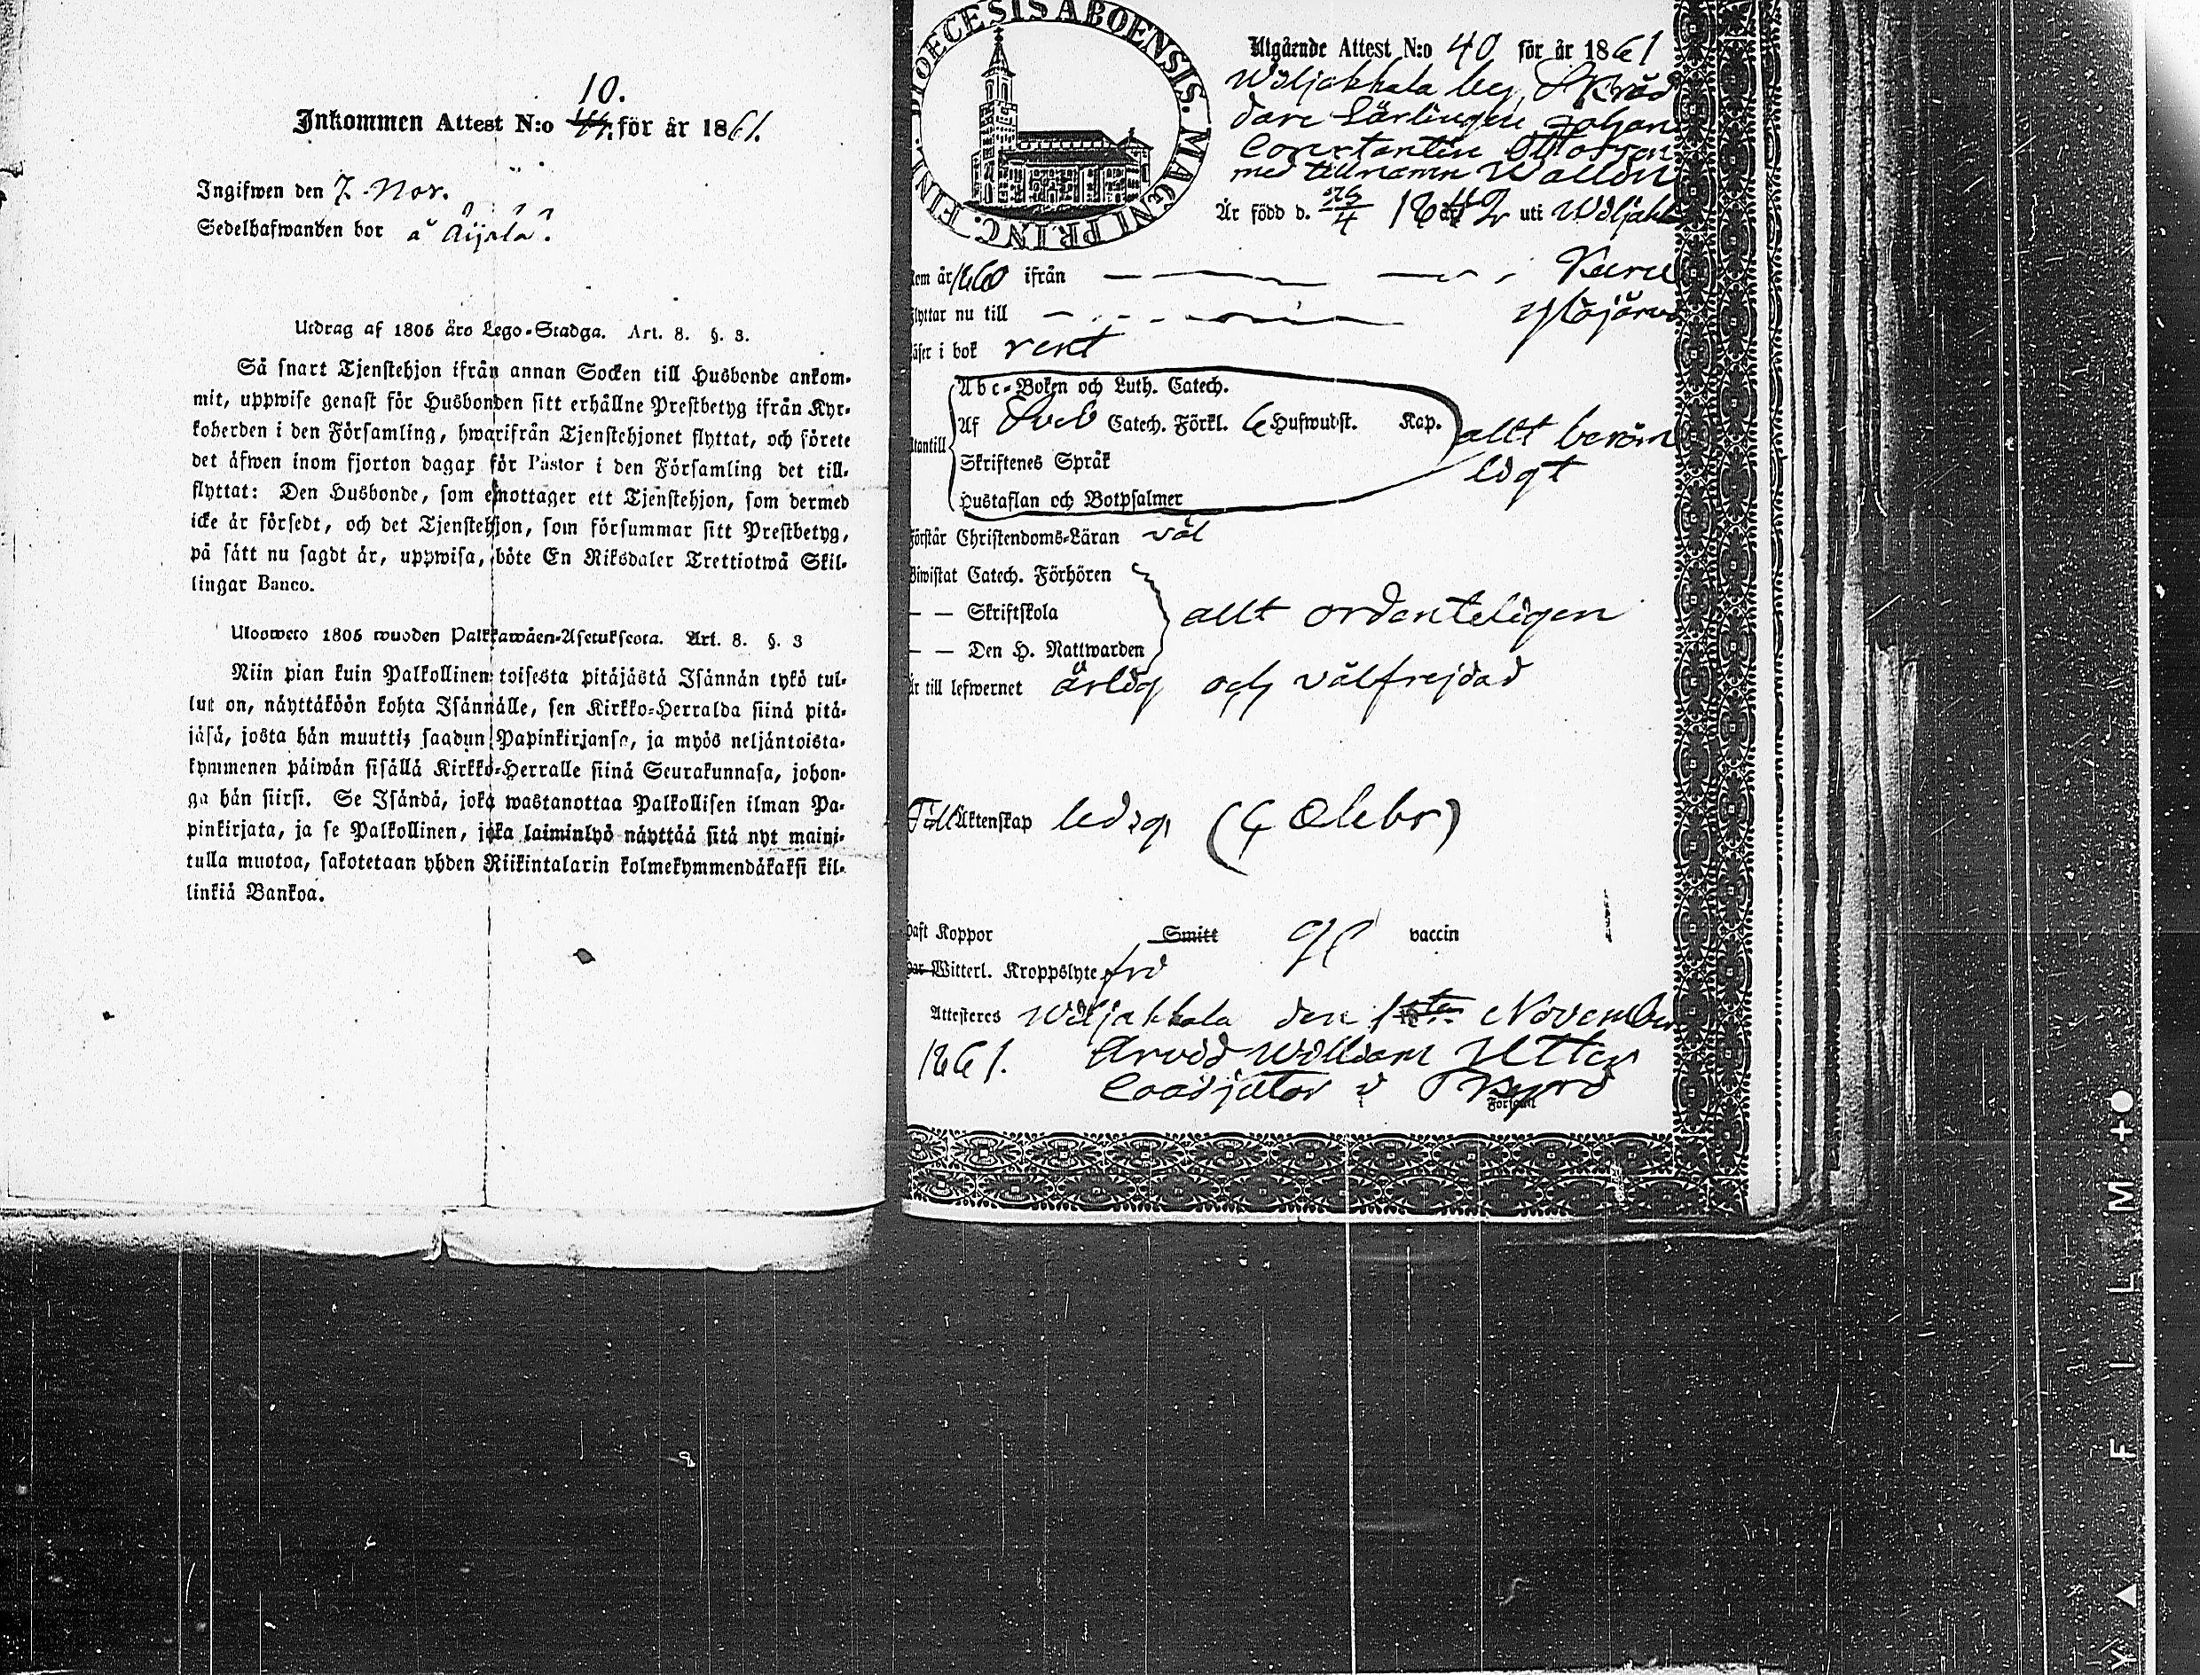 10.
Inkommen Attest N:o för år 1861.
Ingifwen den 7 Nov.
Sedelhafwanden bor å Äijälä.
Utdrag af 1805 åro Lego-Stadga. Art. 8. §. 3.
Så snart Tjenstehjon ifrån annan Socken till Husbonde ankom-
mit, uppwise genast för Husbonden sitt erhållne Prestbetyg ifrån Kyr-
koherden i den Församling, hwarifrån Tjenstehjonet flyttat, och förete
det äfwen inom fjorton dagar för Pastor i den Församling det till-
flyttat: Den Husbonde, som emottager ett Tjenstehjon, som dermed
icke är försedt, och det Tjenstehjon, som försummar sitt Prestbetyg,
på sätt nu sagdt är, uppwisa, böte En Riksdaler Trettiotwå Skil-
lingar Banco.
Uloosweto 1805 wuoden Palkkawäen-Asetuksesta. Art. 8. §. 3
Niin pian kuin Palkollinen toisesta pitäjästä Isännän tykö tul-
lut on, näyttäköön kohta Isännälle, sen Kirkko-Herralda siinä pitä-
jäsä, josta hän muutti, saadun Papinkirjansa, ja myös neljäntoista-
kymmenen päiwän sisällä Kirkko-Herralle siinä Seurakunnasa, johon-
ga hän siirsi. Se Isändä, joka wastanottaa Palkollisen ilman Pa-
pinkirjata, ja se Palkollinen, joka laiminlyö näyttää sitä nyt maini-
tulla muotoa, sakotetaan yhden Riikintalarin kolmekymmendäkaksi kil-
linkiä Bankoa.
DIOECESIS ABOENSIS. MAGNI PRINC. FINL.
Utgående Attest N:o 40 för år 1861
Wiljakkala Skräd
dare Lärlingen Johan
Constantin Ottosson
med tillnamn Wallin
Är född d. 25/4 1842 uti Wiljakk
kom år 1860 ifrån Kuru
flyttar nu till Ylöjärvi
läser i bok rent
Abc-Boken och Luth. Catech.
Af Sveb Catech. Förkl. 6 Hufwudst. Kap. allt beröm
utantill
Skriftenes Språk ligt
Hustaflan och Botpsalmer
förstår Christendoms-Läran väl
Biwistat Catech. Förhören
— — Skriftskola allt ordenteligen
— — Den H. Nattwarden
Är till lefwernet ärlig och välfrejdad
Till Äktenskap ledig
haft Koppor Smitt vaccin
har Witterl. Kroppslyte fri
Attesteras Wiljakkala den 1sta November
1861. Arvid William Utter
Coadjutor i Kyro
Församl
Y ▲ F I L M +●